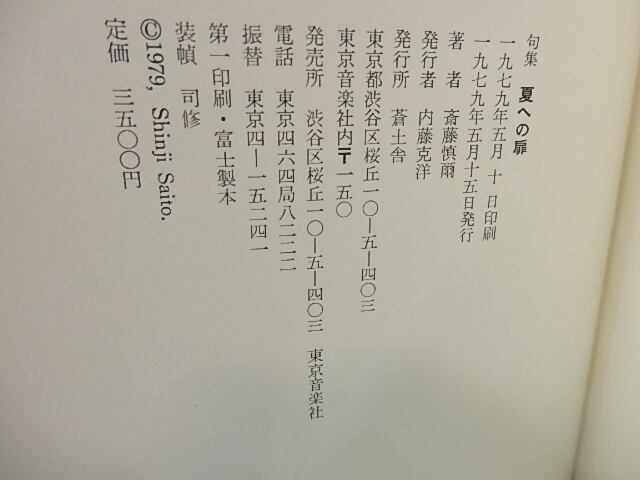 句集 夏への扉
一九七九年五月 十 日印刷
一九七九年五月十五日発行
著 者 斎藤慎爾
発行者 内藤克洋
発行所 蒼土舎
東京都渋谷区桜丘一〇―五―四〇三
東京音楽社内〒一五〇
発売所 渋谷区桜丘一〇―五―四〇三 東京音楽社
電話 東京四六四局八二二二
振替 東京四―一五二四一
第一印刷・富士製本
装幀 司修
©1979, Shinji Saito.
定価 三五〇〇円